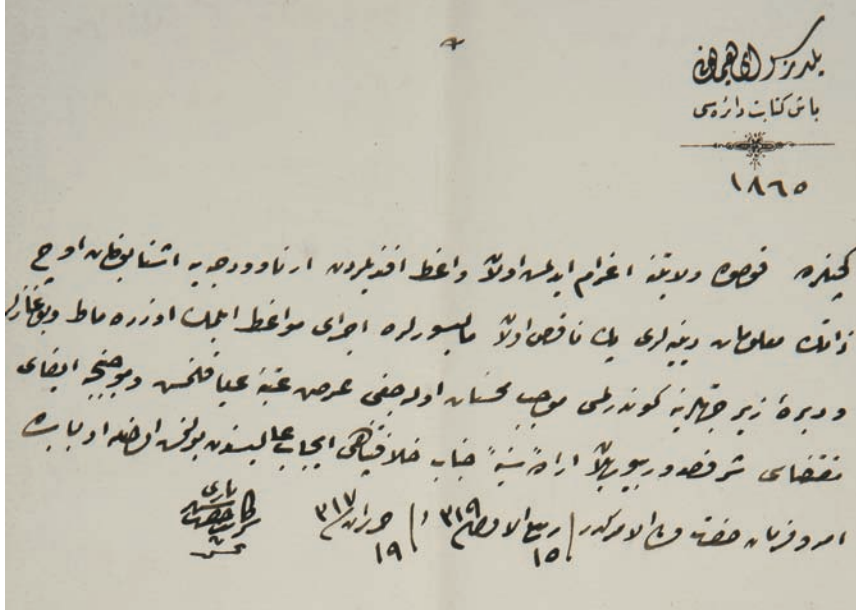 یلدیز سرای همایونی
باش کتابت دائره سی
١٨٦٥
کچنلرده قوصوه ولایتنه اعزام ایدلمش اولان واعظ افندیلردن ارناوودجه یه اشنا بولنان اوچ
ذاتك معلومات دینیه لری پك ناقص اولان مالیسورلره اجرای مواعظ ایلمك اوزره ماط
ودبرهٔ زیر جهتلرینه کوندرلمسی موجب محسنات اوله جغی عرض عتبهٔ علیا قلنمش وموجبنجه ایفای
مقتضاسی شرفصدور بیوریلان ارادهٔ سنیهٔ جناب خلافتپناهی ایجاب عالیسندن بولنمش اولمغله اولبابده
امر وفرمان حضرت من له الامرکدر
١٥ ربیع الاول ٣١٩ و ١٩ حزیران ٣١٧
سرکاتب حضرت شهریاری
تحسین